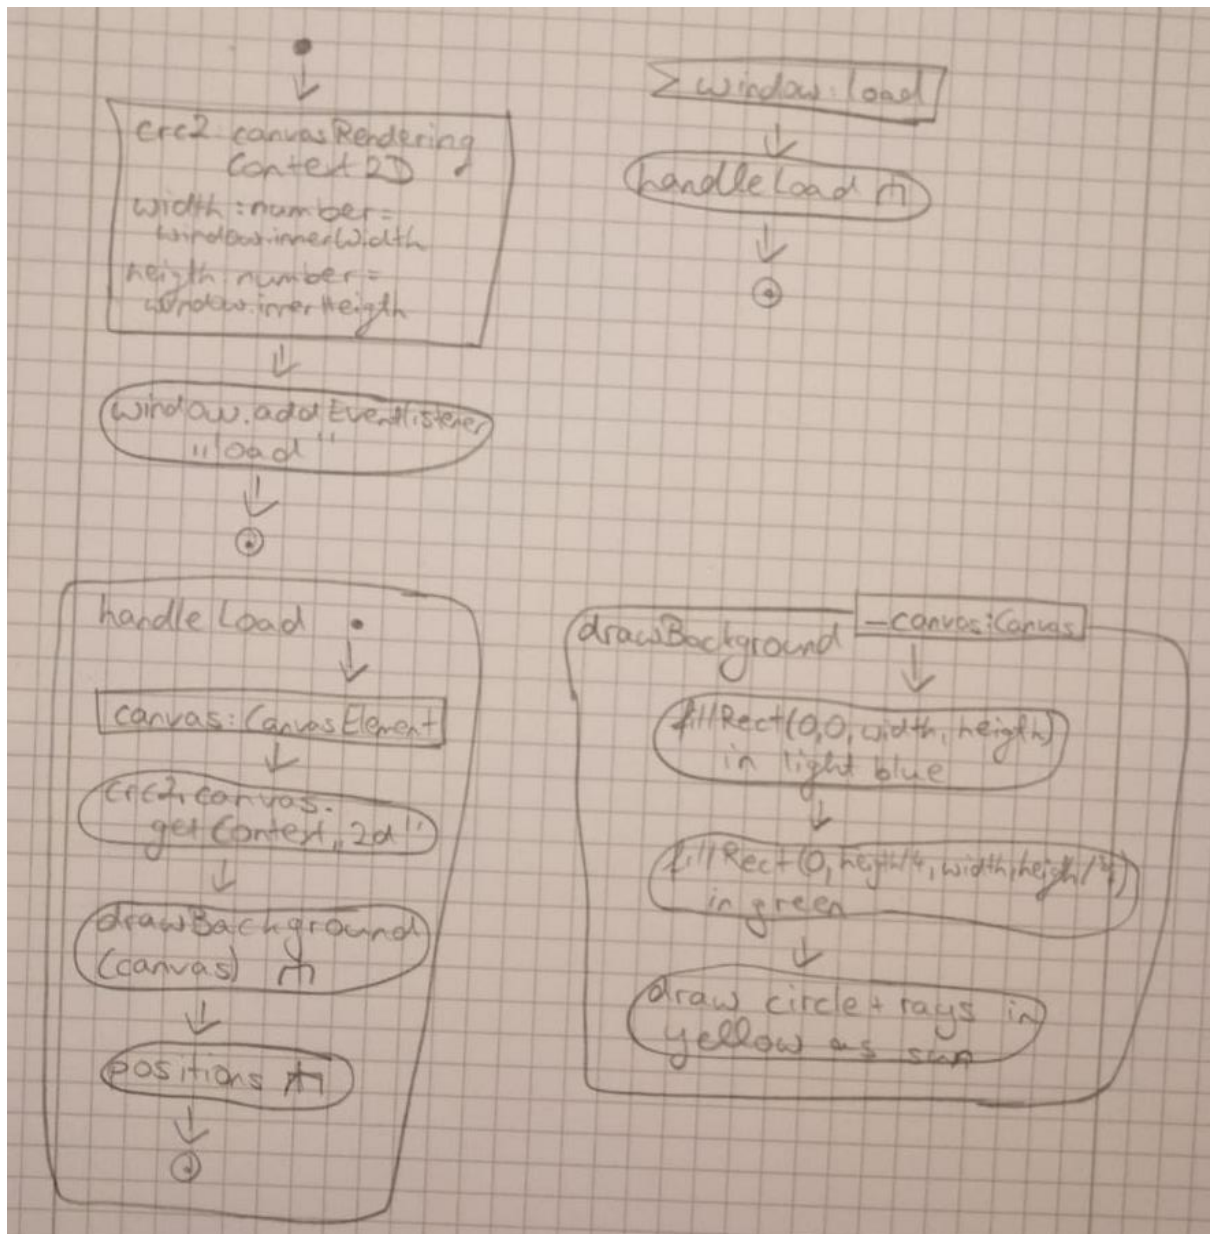 crc2: canvasRendering
Context2D
width: number =
window.innerWidth
heigth: number =
window.innerHeigth
window.addEventlistener
„load"
window: load
handleLoad
handleLoad
canvas: CanvasElement
crc2: canvas.
getContext „2d"
drawBackground
(canvas)
positions
drawBackground
canvas: Canvas
fillRect(0,0, width, heigth)
in light blue
fillRect(0, heigth/4, width, heigth/4)
in green
draw circle + rays in
yellow as sun